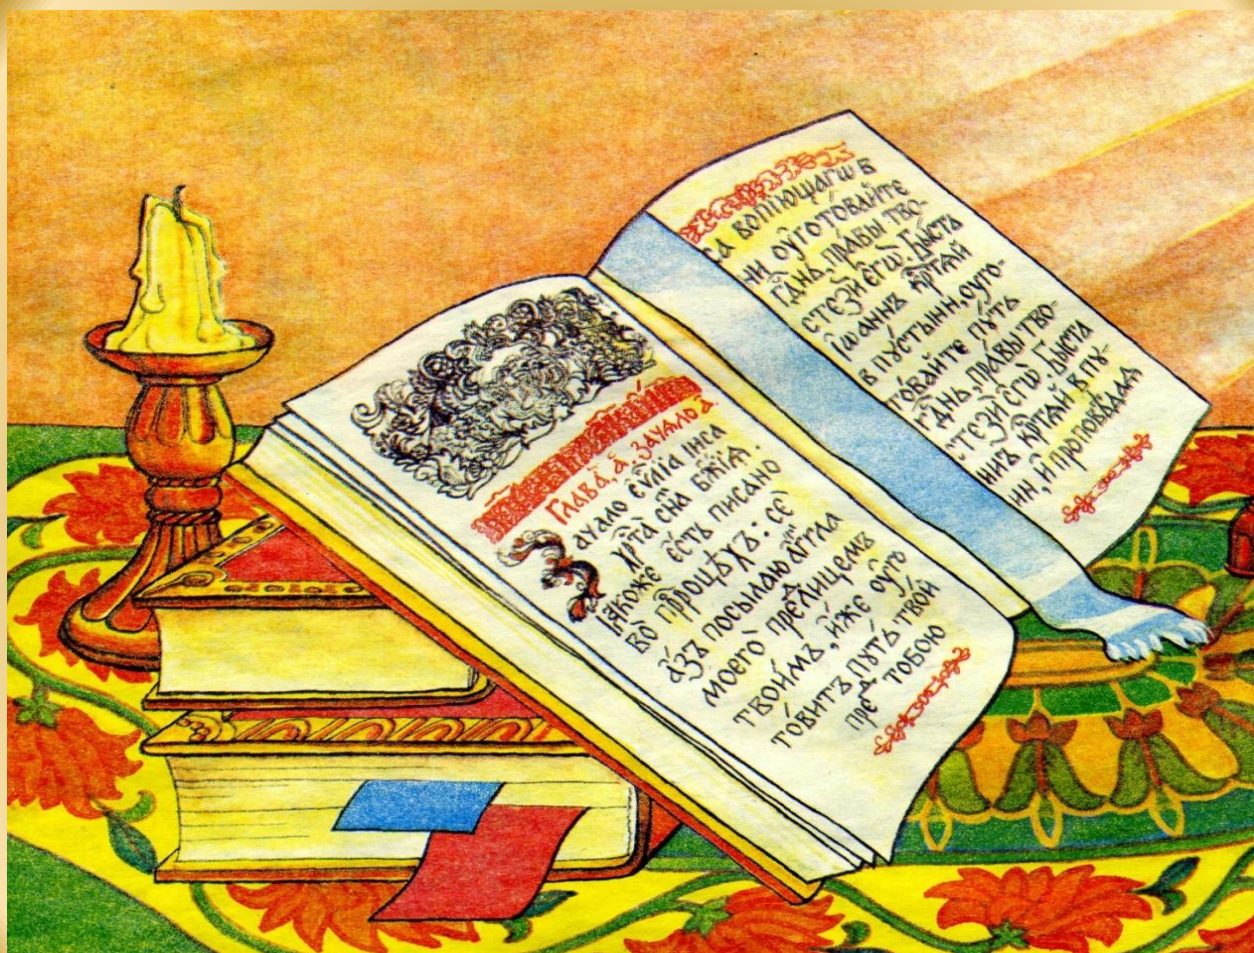 Глава̀, а҃, зачало а҃
Зачало є҆ѵⷢ҇лїа і҆иса
хрⷭ҇та̀ сн҃а бж҃їѧ:
ꙗ҆́коже є҆́сть писано
во̀ прⷪ҇ро́цѣхъ: сѐ
а҆́зъ посылаю а҆́гг҃ла
моего̀ пред̾лицемъ
твои́мъ, и҆́же ᲂу҆гᲂ
то́витъ пꙋ́ть тво́й
пред тобою
са вопїющагѡ в
ни ᲂу҆гото́вайте
гдⷭ҇нь, пра́вы тво-
стезѝ є҆гѡ̀. Бы́сть
і҆ѡаннъ крⷭ҇та́й
в пꙋсты́ни, ᲂуго-
то́вайте пꙋ́ть
гдⷭ҇нь, пра́вы тво-
стезѝ єгѡ̀. Бы́сть
ннъ крⷭ҇та́й в пꙋ-
ин, и҆ проповѣ́даѧ